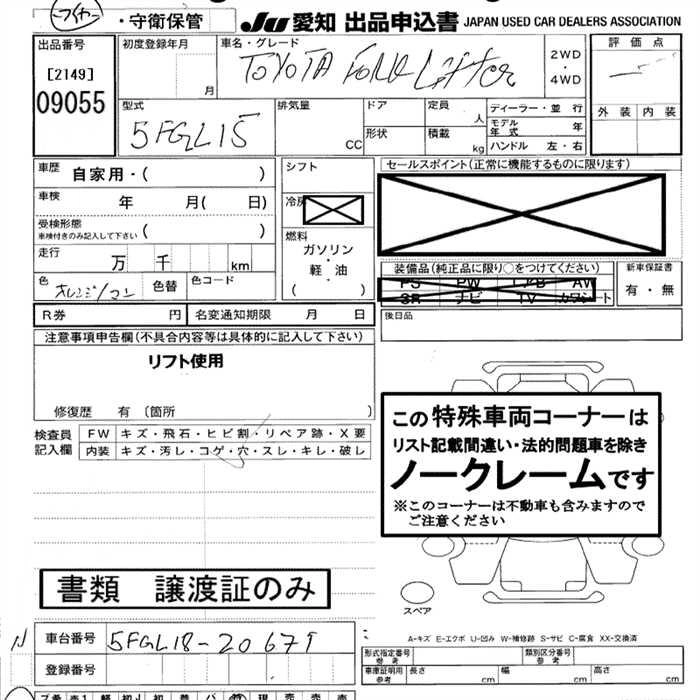 ・守衛保管 JU 愛知 出品申込書 JAPAN USED CAR DEALERS ASSOCIATION
出品番号
[2149]
09055
初度登録年月
月
車名・グレード
TOYOTA
2WD
・
4WD
評価点
外装 内装
型式
5FGL15
排気量
CC
ドア
形状
定員
人
積載
kg
ディーラー・並行
モデル年式 年
ハンドル 左・右
車歴 自家用・( )
車検 年 月( 日)
受検形態
車検付きのみ記入して下さい ( )
走行 万 千 km
色 色替 色コード
シフト
冷房
燃料
ガソリン
・
軽・油
( )
セールスポイント(正常に機能するものに限ります)
装備品(純正品に限り○をつけてください)
PS PW エアB AW
SR ナビ TV カワシート
新車保証書
有・無
R券 円 名変通知期限 月 日
後日品
注意事項申告欄(不具合内容等は具体的に記入して下さい)
リフト使用
修復歴 有 〔箇所 〕
検査員記入欄
FW キズ・飛石・ヒビ割・リペア跡・X要
内装 キズ・汚レ・コゲ・穴・スレ・キレ・破レ
この特殊車両コーナーは
リスト記載間違い・法的問題車を除き
ノークレームです
※このコーナーは不動車も含みますので
ご注意ください
書類 譲渡証のみ
スペア
A-キズ E-エクボ U-凹み W-補修跡 S-サビ C-腐食 XX-交換済
N
車台番号 5FGL18-20671
登録番号
形式指定番号
参考
類別区分番号
参考
車庫証明用
参考
長さ cm 幅 cm 高さ cm